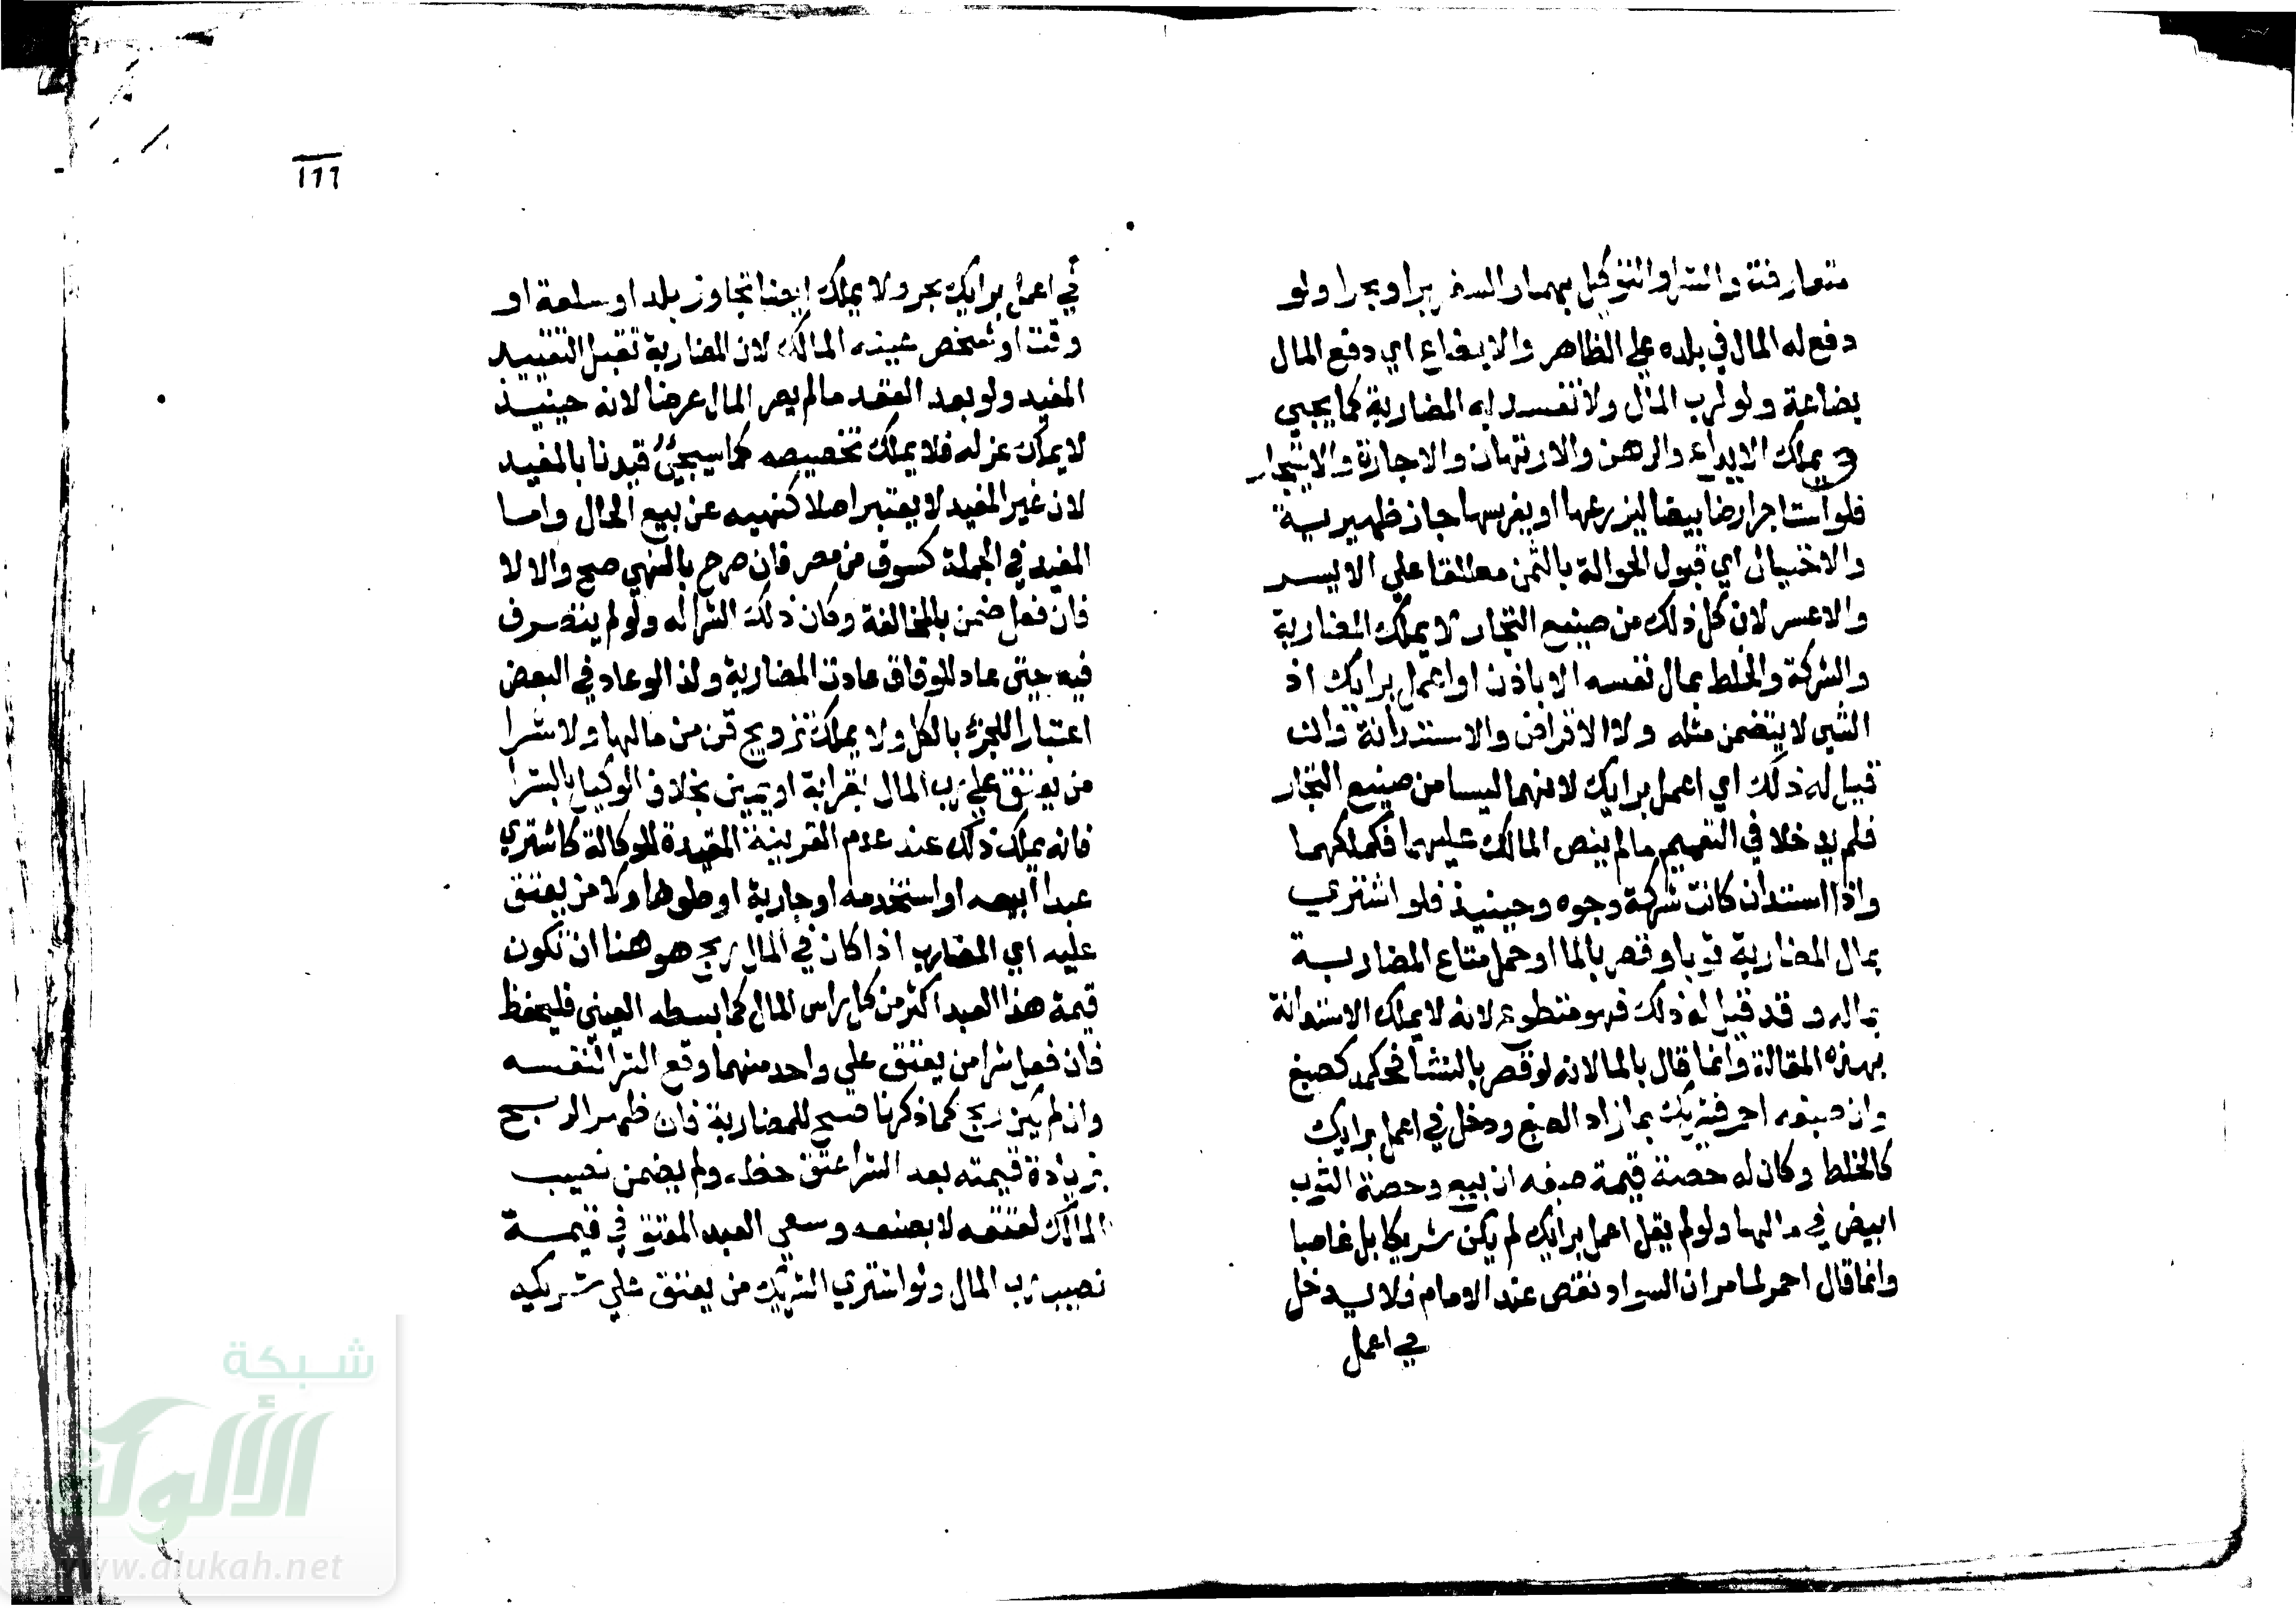 متعارفة والشرا والتوكيل بهما والسفر برا وبحرا ولو
دفع له المال في بلده علي الظاهر والابضاع اي دفع المال
بضاعة ولو لرب المال ولا تفسد به المضاربة كما يجيي
و يملك الايداع والرهن والارتهان والاجارة والاستيجار
فلو استاجر ارضا بيضا ليزرعها او يغرسها جاز ظهيرية
والاحتيال اي قبول الحوالة بالثمن مطلقا علي الايسر
والاعسر لان كل ذلك من صنيع التجار لا يملك المضاربة
والشركة والخلط بمال نفسه الا باذن او اعمل برايك اذ
الشي لا يتضمن مثله ولا الاقراض والاستدانة وان
قيل له ذلك اي اعمل برايك لانهما ليسا من صنيع التجار
فلم يدخلا في التعميم مالم ينص المالك عليهما فكملكهما
واذا استدان كانت شركة وجوه وحينيذ فلو اشتري
بمال المضاربة ثوبا وقصر بالما او حمل متاع المضاربة
بماله وقد قيل له ذلك فهو متطوع لانه لا يملك الاستدانة
بهذه المقالة وانما قال بالما لانه لو قصر بالنشا فحكمه كصبغ
وان صبغه احمر فشريك بما زاد الصبغ ودخل في اعمل برايك
كالخلط وكان له حصة قيمة صبغه ان بيع وحصة الثوب
ابيض في مالها ولو لم يقل اعمل برايك لم يكن شريكا بل غاصبا
وانما قال احمر لما مر ان السواد نقص عند الامام فلا يدخل
في اعمل
١٦٦
في اعمل برايك بحر ولا يملك ايضا تجاوز بلد او سلعة او
وقت او شخص عينه المالك لان المضاربة تقبل التقييد
المفيد ولو بعد العقد مالم يصر المال عرضا لانه حينيذ
لا يملك عزله فلا يملك تخصيصه كما سيجيئ قيدنا بالمفيد
لان غير المفيد لا يعتبر اصلا كنهيه عن بيع الحال واما
المفيد في الجملة كسوق من مصر فان صرح بالنهي صح والا لا
فان فعل ضمن بالمخالفة وكان ذلك الشرا له ولو لم يتصرف
فيه حتي عاد للوفاق عادت المضاربة وكذا لو عاد في البعض
اعتبارا للجزء بالكل ولا يملك تزويج قن من مالها ولا شرا
من يعتق علي رب المال بقرابة او يمين بخلاف الوكيل بالشرا
فانه يملك ذلك عند عدم القرينة المقيدة للوكالة كاشتري
عبدا ابيعه او استخدمه او جارية اوطوها ولا من يعتق
عليه اي المضارب اذا كان في المال ربح هو هنا ان تكون
قيمة هذا العبد اكثر من كل راس المال كما بسطه العيني فليحفظ
فان فعل شرا من يعتق علي واحد منهما وقع الشرا لنفسه
وان لم يكن ربح كما ذكرنا صح للمضاربة فان ظهر الربح
بزيادة قيمته بعد الشرا عتق حظه ولم يضمن نصيب
المالك لعتقه لا بصنعه وسعي العبد المعتق في قيمة
نصيب رب المال ولو اشتري الشريك من يعتق علي شريكه
شبكة
الألوكة
www.alukah.net